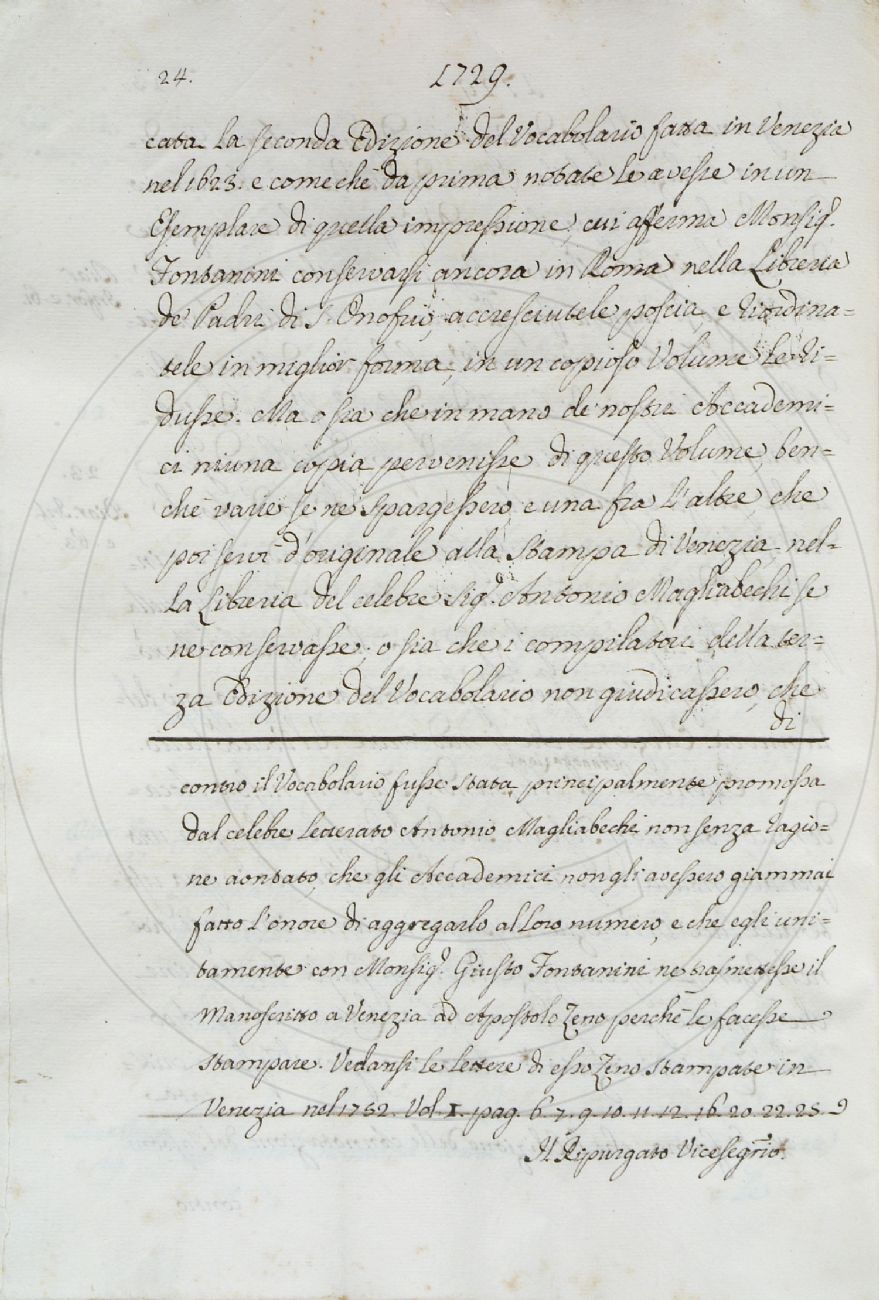 24.
1729.
cata la seconda Edizione del Vocabolario fatta in Venezia
nel 1623. e come chè da prima notate le avesse in un
Esemplare di quella impressione, cui afferma Monsig.r
Fontanini conservarsi ancora in Roma nella Libreria
de' Padri di S. Onofrio, accresciutele poscia e riordina=
tele in miglior forma, in un copioso Volume le ri=
dusse. Ma o sia che in mano de' nostri Accademi=
ci niuna copia pervenisse di questo Volume, ben=
chè varie se ne spargessero, e una fra l'altre che
poi servì d'originale alla Stampa di Venezia nel=
la Libreria del celebre Sig.r Antonio Magliabechi se
ne conservasse; o sia che i compilatori della ter=
za Edizione del Vocabolario non giudicassero, che
di
contro il Vocabolario fusse stata principalmente promossa
dal celebre Letterato Antonio Magliabechi non senza ragio=
ne aontato, che gli Accademici non gli avessero giammai
fatto l'onore di aggregarlo al loro numero, e che egli uni=
tamente con Monsig.r Giusto Fontanini ne trasmettesse il
Manoscritto a Venezia ad Apostolo Zeno perchè le facesse
stampare. Vedansi le lettere di esso Zeno stampate in
Venezia nel 1752. Vol. I. pag. 6. 7. 9. 10. 11. 12. 16. 20. 22. 25.
Il Ripurgato Vicesegrio.